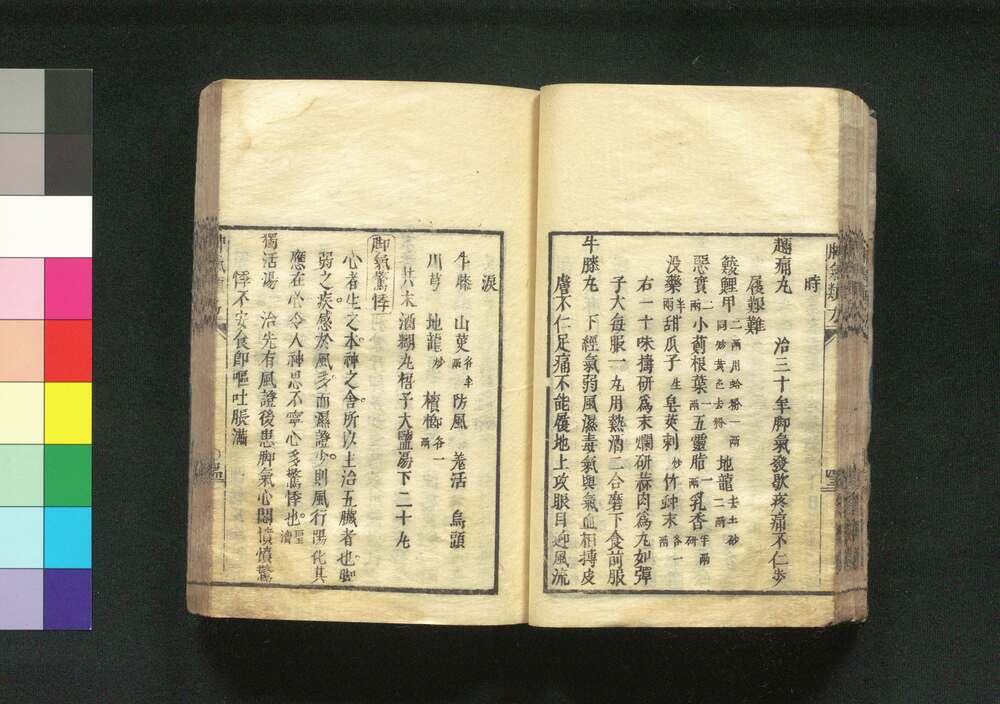 時
趂痛丸　治三十年脚氣發歇疼痛不仁歩
履艱難
鯪鯉甲二兩用蛤粉一兩同炒黄色去粉　地龍去土炒二兩
惡實二兩　小薊根葉一　五靈脂一兩　乳香半兩研
没藥半兩　甜瓜子生　皂莢刺炒　竹蛀末各一兩
右一十味擣研爲末爛研蒜肉爲丸如彈
子大毎服一丸用熱酒二合磨下食前服
牛膝丸　下經氣弱風濕毒氣與氣血相摶皮
膚不仁足痛不能履地上攻眼目迎風流
淚
牛膝　山茰各半兩　防風　羗活　烏頭
川芎　地龍炒　檳榔各一兩
共末酒糊丸梧子大鹽湯下二十丸
脚氣驚悸
心者生之本神之舍所以主治五臓者也脚
弱之疾感於風多而濕證少則風行陽化其
應在心令人神思不寧心多驚悸也聖濟
獨活湯　治先有風證後患脚氣心悶憒憒驚
悸不安食即嘔吐脹滿